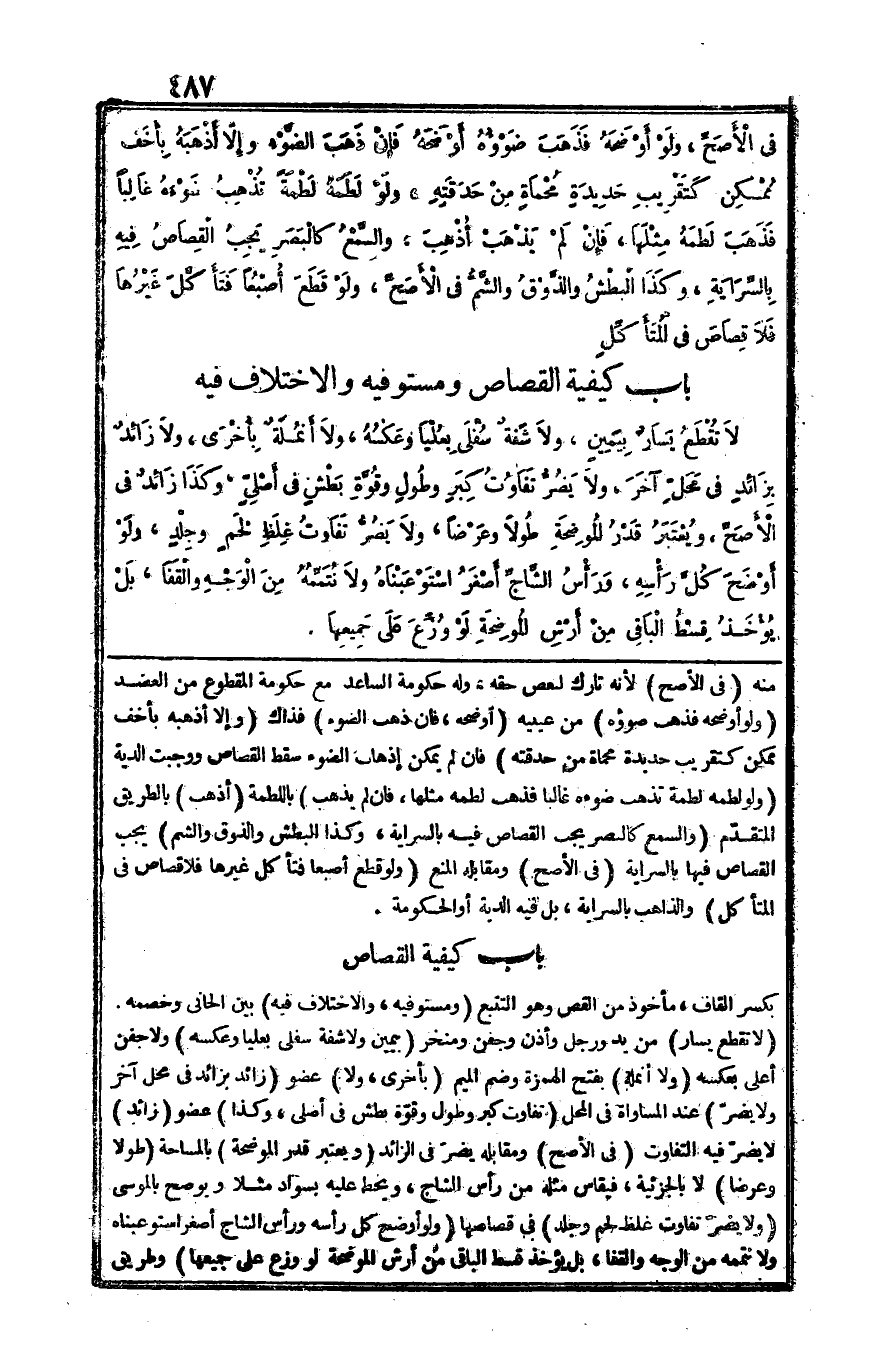 ٤٨٧
فِى الْأَصَحِّ ، وَلَوْ أَوْضَحَهُ فَذَهَبَ ضَوْؤُهُ أَوْضَحَهُ فَإِنْ ذَهَبَ الضَّوْءُ وإِلاَّ أَذْهَبَهُ بِأَخَفِّ
مُمْكِنٍ كَتَقْرِيبِ حَدِيدَةٍ مُحْمَاةٍ مِنْ حَدَقَتِهِ ، وَلَوْ لَطَمَهُ لَطْمَةً تُذْهِبُ ضَوْءَهُ غَالِباً
فَذَهَبَ لَطَمَهُ مِثْلَهَا ، فَإِنْ لَمْ يَذْهَبْ أُذْهِبَ ، والسَّمْعُ كالْبَصَرِ يَجِبُ الْقِصَاصُ فِيهِ
بِالسِّرَايَةِ ، وكَذَا الْبَطْشُ والذَّوْقُ والشَّمُّ فى الْأَصَحِّ ، ولَوْ قَطَعَ أُصْبُعاً فَتَأَ كَّلَ غَيْرُهَا
فَلاَ قِصَاصَ فى الْمُتَأَ كِّلِ
باب كيفية القصاص ومستوفيه والاختلاف فيه
لاَ تُقْطَعُ يَسَارٌ بِيَمِينٍ ، ولاَ شَفَةٌ سُفْلَى بِعُلْيَا وعَكْسُهُ ، ولاَ أَنْمُلَةٌ بِأُخْرَى ، ولاَ زَائدٌ
بِزَائدٍ فى مَحَلٍّ آخَرَ ، ولاَ يَضُرُّ تَفَاوُتُ كِبَرٍ وطُولٍ وقُوَّةِ بَطْشٍ فى أَصْلِيٍّ ، وكَذَا زَائدٌ فى
الْأَصَحِّ ، ويُعْتَبَرُ قَدْرُ الْمُوضِحَةِ طُولاً وعَرْضاً ، ولاَ يَضُرُّ تَفَاوُتُ غِلَظِ لَحْمٍ وجِلْدٍ ، ولَوْ
أَوْضَحَ كُلَّ رَأْسِهِ ، وَرَأْسُ الشَّاجِّ أَصْغَرُ اسْتَوْعَبْنَاهُ ولاَ نُتَمِّمُهُ مِنَ الْوَجْهِ والْقَفَا ، بَلْ
يُؤْخَذُ قِسْطُ الْبَاقِى مِنْ أَرْشِ الْمُوضِحَةِ لَوْ وُزِّعَ عَلَى جَمِيعِهَا .
منه ( فى الأصح ) لأنه تارك لبعض حقه ، وله حكومة الساعد مع حكومة المقطوع من العضد
( ولو أوضحه فذهب ضوؤه ) من عينيه ( أوضحه ، فان ذهب الضوء ) فذاك ( وإلا أذهبه بأخف
ممكن كتقريب حديدة محماة من حدقته ) فان لم يمكن إذهاب الضوء سقط القصاص ووجبت الدية
( ولو لطمه لطمة تذهب ضوءه غالبا فذهب لطمه مثلها ، فان لم يذهب ) باللطمة ( أذهب ) بالطريق
المتقدّم ( والسمع كالبصر يجب القصاص فيه بالسراية ، وكذا البطش والذوق والشم ) يجب
القصاص فيها بالسراية ( فى الأصح ) ومقابله المنع ( ولو قطع أصبعا فتأ كل غيرها فلا قصاص فى
المتأ كل ) والذاهب بالسراية ، بل فيه الدية أو الحكومة .
باب كيفية القصاص
بكسر القاف ، مأخوذ من القص وهو التتبع ( ومستوفيه ، والاختلاف فيه ) بين الجانى وخصمه .
( لا تقطع يسار ) من يد ورجل وأذن وجفن ومنخر ( بيمين ولا شفة سفلى بعليا وعكسه ) ولا جفن
أعلى بعكسه ( ولا أنملة ) بفتح الهمزة وضم الميم ( بأخرى ، ولا ) عضو ( زائد بزائد فى محل آخر
ولا يضرّ ) عند المساواة فى المحل ( تفاوت كبر وطول وقوّة بطش فى أصلى ، وكذا ) عضو ( زائد )
لا يضرّ فيه التفاوت ( فى الأصح ) ومقابله يضرّ فى الزائد ( ويعتبر قدر الموضحة ) بالمساحة ( طولا
وعرضا ) لا بالجزئية ، فيقاس مثله من رأس الشاج ، ويخط عليه بسواد مثلا ويوضح بالموسى
( ولا يضرّ تفاوت غلظ لحم وجلد ) فى قصاصها ( ولو أوضح كل رأسه ورأس الشاج أصغر استوعبناه
ولا نتممه من الوجه والقفا ، بل يؤخذ قسط الباقى من أرش الموضحة لو وزع على جميعها ) وطريق